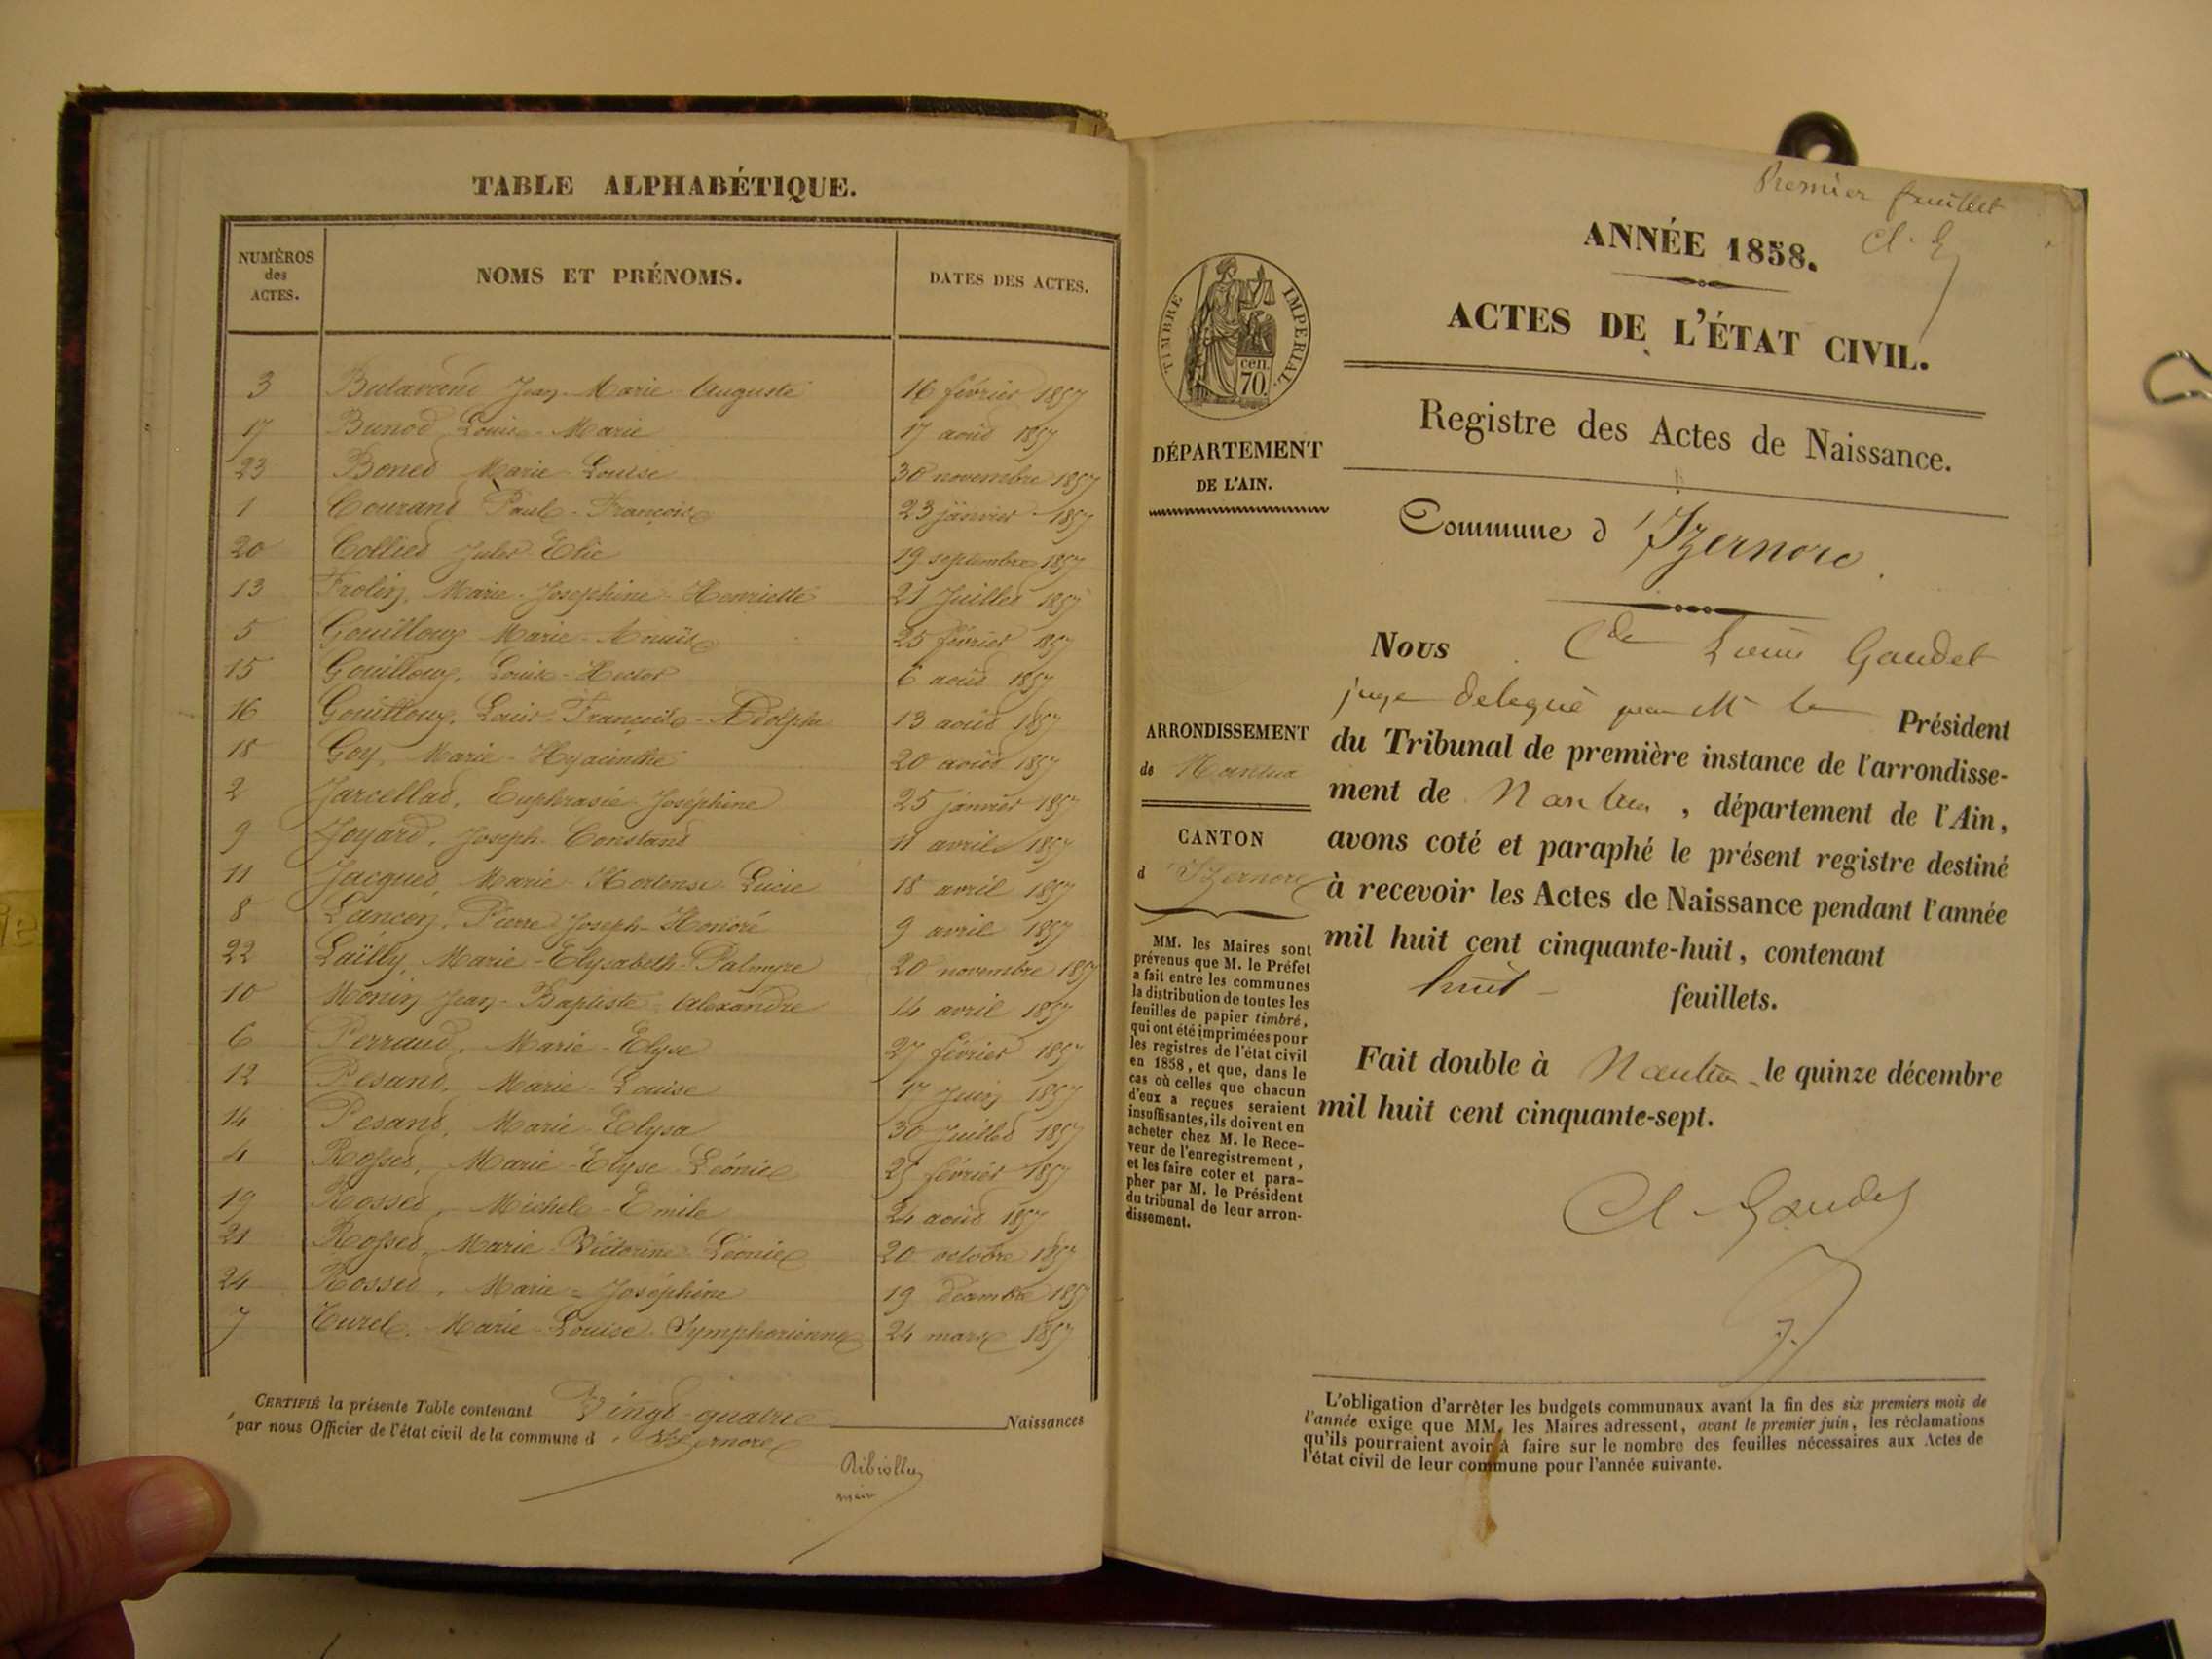 TABLE ALPHABÉTIQUE.
NUMÉROS des ACTES. NOMS ET PRÉNOMS. DATES DES ACTES.
3 Jean-Marie Auguste 16 février 1857
17 Bunod Louise-Marie 17 août 1857
23 Bonet Marie Louise 30 novembre 1857
1 Courand Paul-François 23 janvier 1857
20 Collet Jules Elie 19 septembre 1857
13 Frolin, Marie-Joséphine-Henriette 21 Juillet 1857
5 Gouilloux Marie- 25 février 1857
15 Gouilloux, Louis-Hector 6 août 1857
16 Gouilloux, Louis-François-Adolphe 13 août 1857
18 Goy, Marie-Hyacinthe 20 août 1857
2 Jarcellat, Euphrasie Joséphine 25 janvier 1857
9 Joyard, Joseph-Constant 11 avril 1857
11 Jacquet, Marie-Hortense Lucie 18 avril 1857
8 Lançon, Pierre Joseph-Honoré 9 avril 1857
22 Lailly, Marie-Elysabeth-Palmyre 20 novembre 1857
10 Monin Jean-Baptiste-Alexandre 14 avril 1857
6 Perraud, Marie-Elyse 27 février 1857
12 Pesant, Marie-Louise 17 Juin 1857
14 Pesant, Marie-Elysa 30 Juillet 1857
4 Rosset, Marie-Elyse Léonie 25 février 1857
19 Rosset, Michel-Emile 24 août 1857
21 Rosset, Marie Victorine Léonie 20 octobre 1857
24 Rosset, Marie-Joséphine 19 décembre 1857
7 Turel, Marie-Louise Symphorienne 24 mars 1857
CERTIFIÉ la présente Table contenant Vingt-quatre Naissances
par nous Officier de l'état civil de la commune d'Izernore
maire
Premier feuillet
ANNÉE 1858.
ACTES DE L'ÉTAT CIVIL.
Registre des Actes de Naissance.
TIMBRE IMPÉRIAL.
cen. 70.
DÉPARTEMENT
DE L'AIN.
Commune d'Izernore.
Nous Cde Gaudet
juge délégué par M le Président
du Tribunal de première instance de l'arrondisse-
ment de Nantua, département de l'Ain,
avons coté et paraphé le présent registre destiné
à recevoir les Actes de Naissance pendant l'année
mil huit cent cinquante-huit, contenant
huit feuillets.
Fait double à Nantua, le quinze décembre
mil huit cent cinquante-sept.
Cl Gaudet
ARRONDISSEMENT
de Nantua
CANTON
d'Izernore
MM. les Maires sont
prévenus que M. le Préfet
a fait entre les communes
la distribution de toutes les
feuilles de papier timbré,
qui ont été imprimées pour
les registres de l'état civil
en 1858, et que, dans le
cas où celles que chacun
d'eux a reçues seraient
insuffisantes, ils doivent en
acheter chez M. le Rece-
veur de l'enregistrement,
et les faire coter et para-
pher par M. le Président
du tribunal de leur arron-
dissement.
L'obligation d'arrêter les budgets communaux avant la fin des six premiers mois de
l'année exige que MM. les Maires adressent, avant le premier juin, les réclamations
qu'ils pourraient avoir à faire sur le nombre des feuilles nécessaires aux Actes de
l'état civil de leur commune pour l'année suivante.